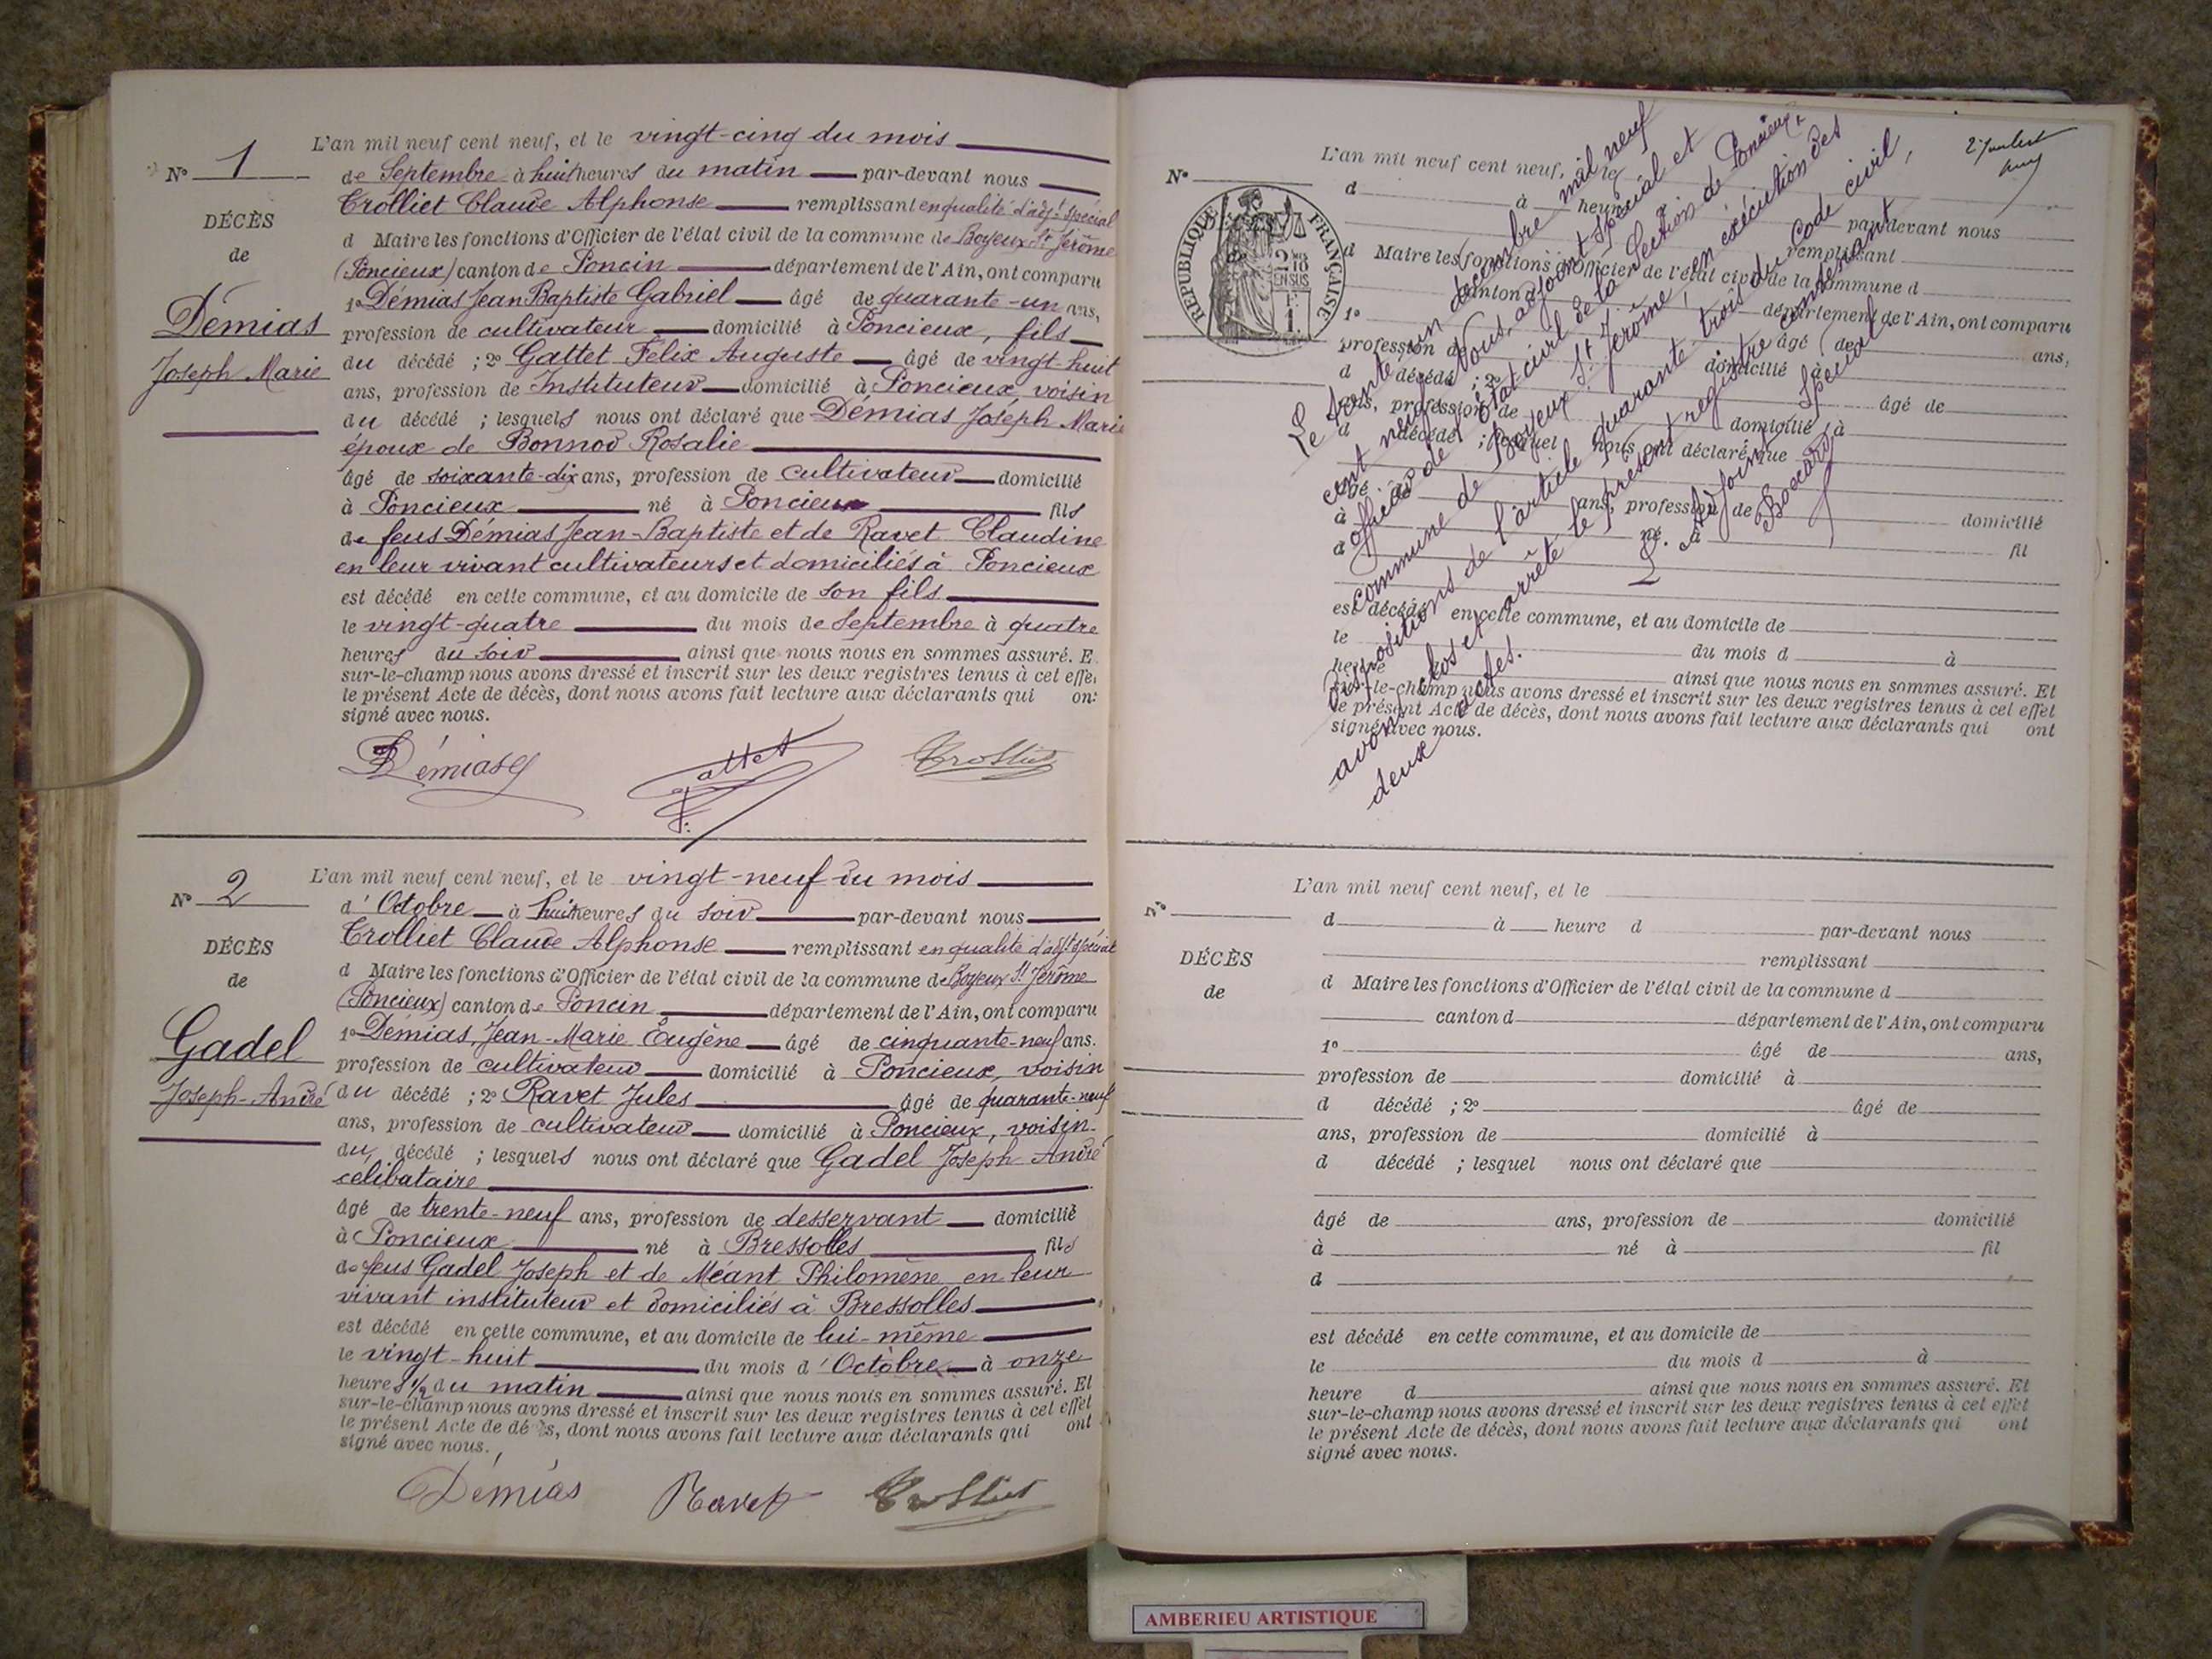 N° 1
DÉCÈS
de
Démias
Joseph Marie
L'an mil neuf cent neuf, et le vingt-cinq du mois
de Septembre à huit heures du matin par-devant nous
Trolliet Claude Alphonse remplissant en qualité d'adjt spécial
d Maire les fonctions d'Officier de l'état civil de la commune de Boyeux St Jérôme
(Poncieux) canton de Poncin département de l'Ain, ont comparu
1° Démias Jean Baptiste Gabriel âgé de quarante-un ans,
profession de cultivateur domicilié à Poncieux, fils
du décédé ; 2° Gattet Félix Auguste âgé de vingt-huit
ans, profession de Instituteur domicilié à Poncieux voisin
du décédé ; lesquels nous ont déclaré que Démias Joseph Marie
époux de Bonnod Rosalie
âgé de soixante-dix ans, profession de cultivateur domicilié
à Poncieux né à Poncieux fils
de feus Démias Jean-Baptiste et de Ravet Claudine
en leur vivant cultivateurs et domiciliés à Poncieux
est décédé en cette commune, et au domicile de son fils
le vingt-quatre du mois de Septembre à quatre
heures du soir ainsi que nous nous en sommes assuré. E
sur-le-champ nous avons dressé et inscrit sur les deux registres tenus à cet effe
le présent Acte de décès, dont nous avons fait lecture aux déclarants qui on
signé avec nous.
Démias Gattet Trolliet
N° 2
DÉCÈS
de
Gadel
Joseph-André
L'an mil neuf cent neuf, et le vingt-neuf du mois
d'Octobre à huit heures du soir par-devant nous
Trolliet Claude Alphonse remplissant en qualité d'adjt spécial
d Maire les fonctions d'Officier de l'état civil de la commune de Boyeux St Jérôme
(Poncieux) canton de Poncin département de l'Ain, ont comparu
1° Démias, Jean-Marie Eugène âgé de cinquante-neuf ans.
profession de cultivateur domicilié à Poncieux, voisin
du décédé ; 2° Ravet Jules âgé de quarante-neuf
ans, profession de cultivateur domicilié à Poncieux, voisin
du décédé ; lesquels nous ont déclaré que Gadel Joseph-André
célibataire
âgé de trente-neuf ans, profession de desservant domicilié
à Poncieux né à Bressolles fils
de feus Gadel Joseph et de Méant Philomène en leur
vivant instituteur et domiciliés à Bressolles
est décédé en cette commune, et au domicile de lui-même
le vingt-huit du mois d'Octobre à onze
heures 1/2 du matin ainsi que nous nous en sommes assuré. Et
sur-le-champ nous avons dressé et inscrit sur les deux registres tenus à cet effet
le présent Acte de décès, dont nous avons fait lecture aux déclarants qui ont
signé avec nous.
Démias Ravet Trolliet
N°
RÉPUBLIQUE FRANÇAISE
L'an mil neuf cent neuf, et le
d à heure
par-devant nous
remplissant
d Maire les fonctions d'Officier de l'état civil de la commune d
canton d département de l'Ain, ont comparu
1° âgé de ans,
profession de domicilié à
d décédé ; 2° âgé de
ans, profession de domicilié à
d décédé ; lesquel nous ont déclaré que
âgé de ans, profession de domicilié
à né à fil
d
est décédé en cette commune, et au domicile de
le du mois d à
heure ainsi que nous nous en sommes assuré. Et
sur-le-champ nous avons dressé et inscrit sur les deux registres tenus à cet effet
le présent Acte de décès, dont nous avons fait lecture aux déclarants qui ont
signé avec nous.
Le trente un décembre mil neuf
cent neuf, Nous, adjoint spécial et
officier de l'état civil de la Section de Poncieux,
commune de Boyeux St Jérôme, en exécution des
dispositions de l'article quarante-trois du Code civil,
avons clos et arrêté le présent registre contenant
deux actes.
L'Adjoint Spécial
Boccard
N°
DÉCÈS
de
L'an mil neuf cent neuf, et le
d à heure d par-devant nous
remplissant
d Maire les fonctions d'Officier de l'état civil de la commune d
canton d département de l'Ain, ont comparu
1° âgé de ans,
profession de domicilié à
d décédé ; 2° âgé de
ans, profession de domicilié à
d décédé ; lesquel nous ont déclaré que
âgé de ans, profession de domicilié
à né à fil
d
est décédé en cette commune, et au domicile de
le du mois d à
heure d ainsi que nous nous en sommes assuré. Et
sur-le-champ nous avons dressé et inscrit sur les deux registres tenus à cet effet
le présent Acte de décès, dont nous avons fait lecture aux déclarants qui ont
signé avec nous.
AMBERIEU ARTISTIQUE